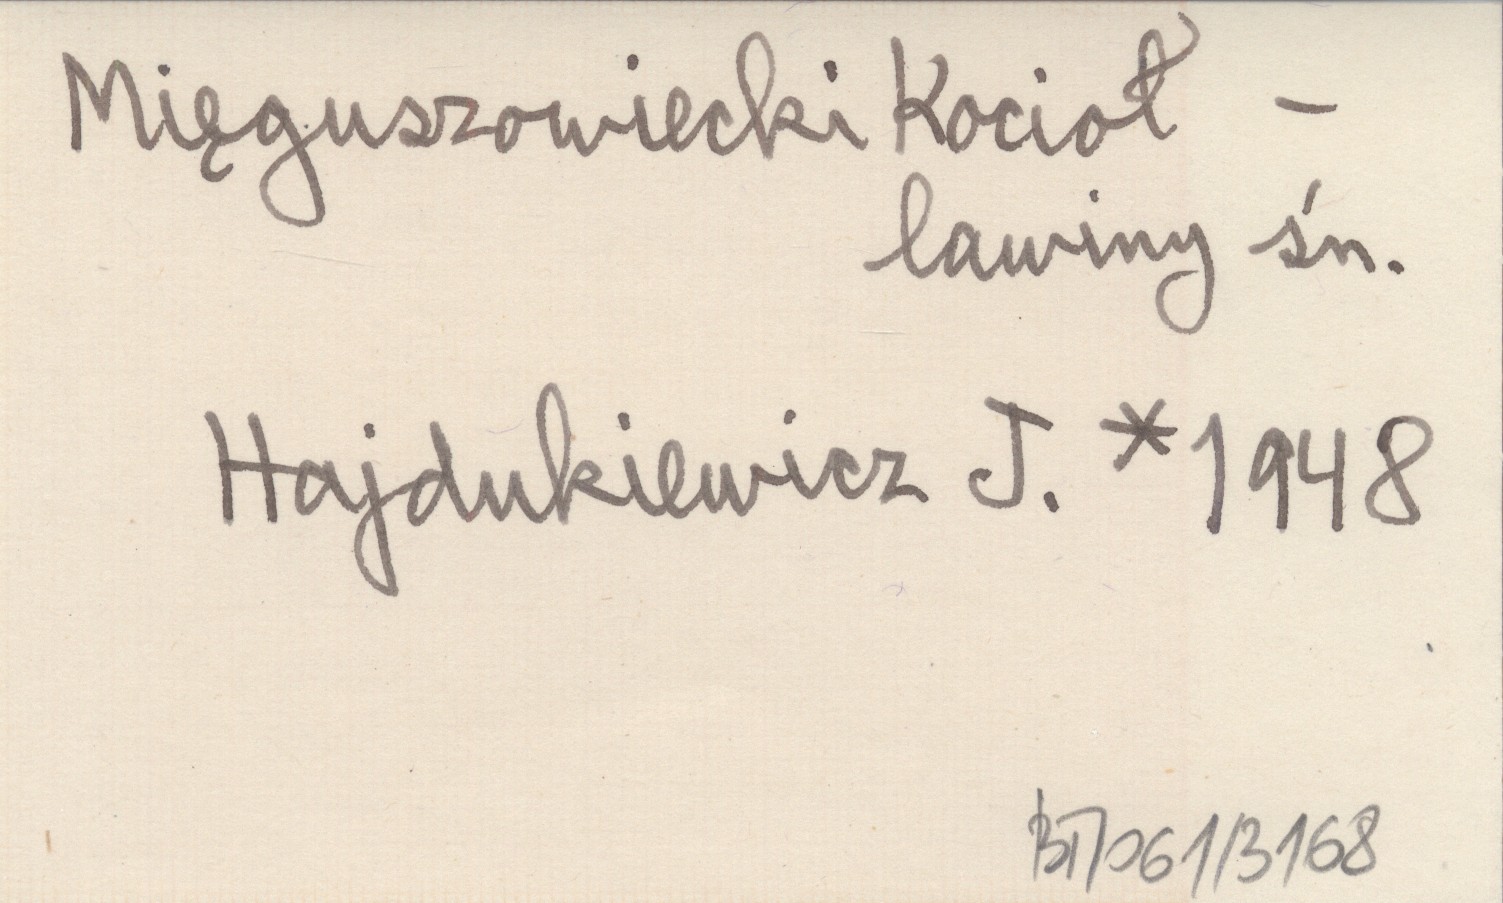 Mięguszowiecki Kocioł –
lawiny śn.
Hajdukiewicz J. *1948
BT/061/3168